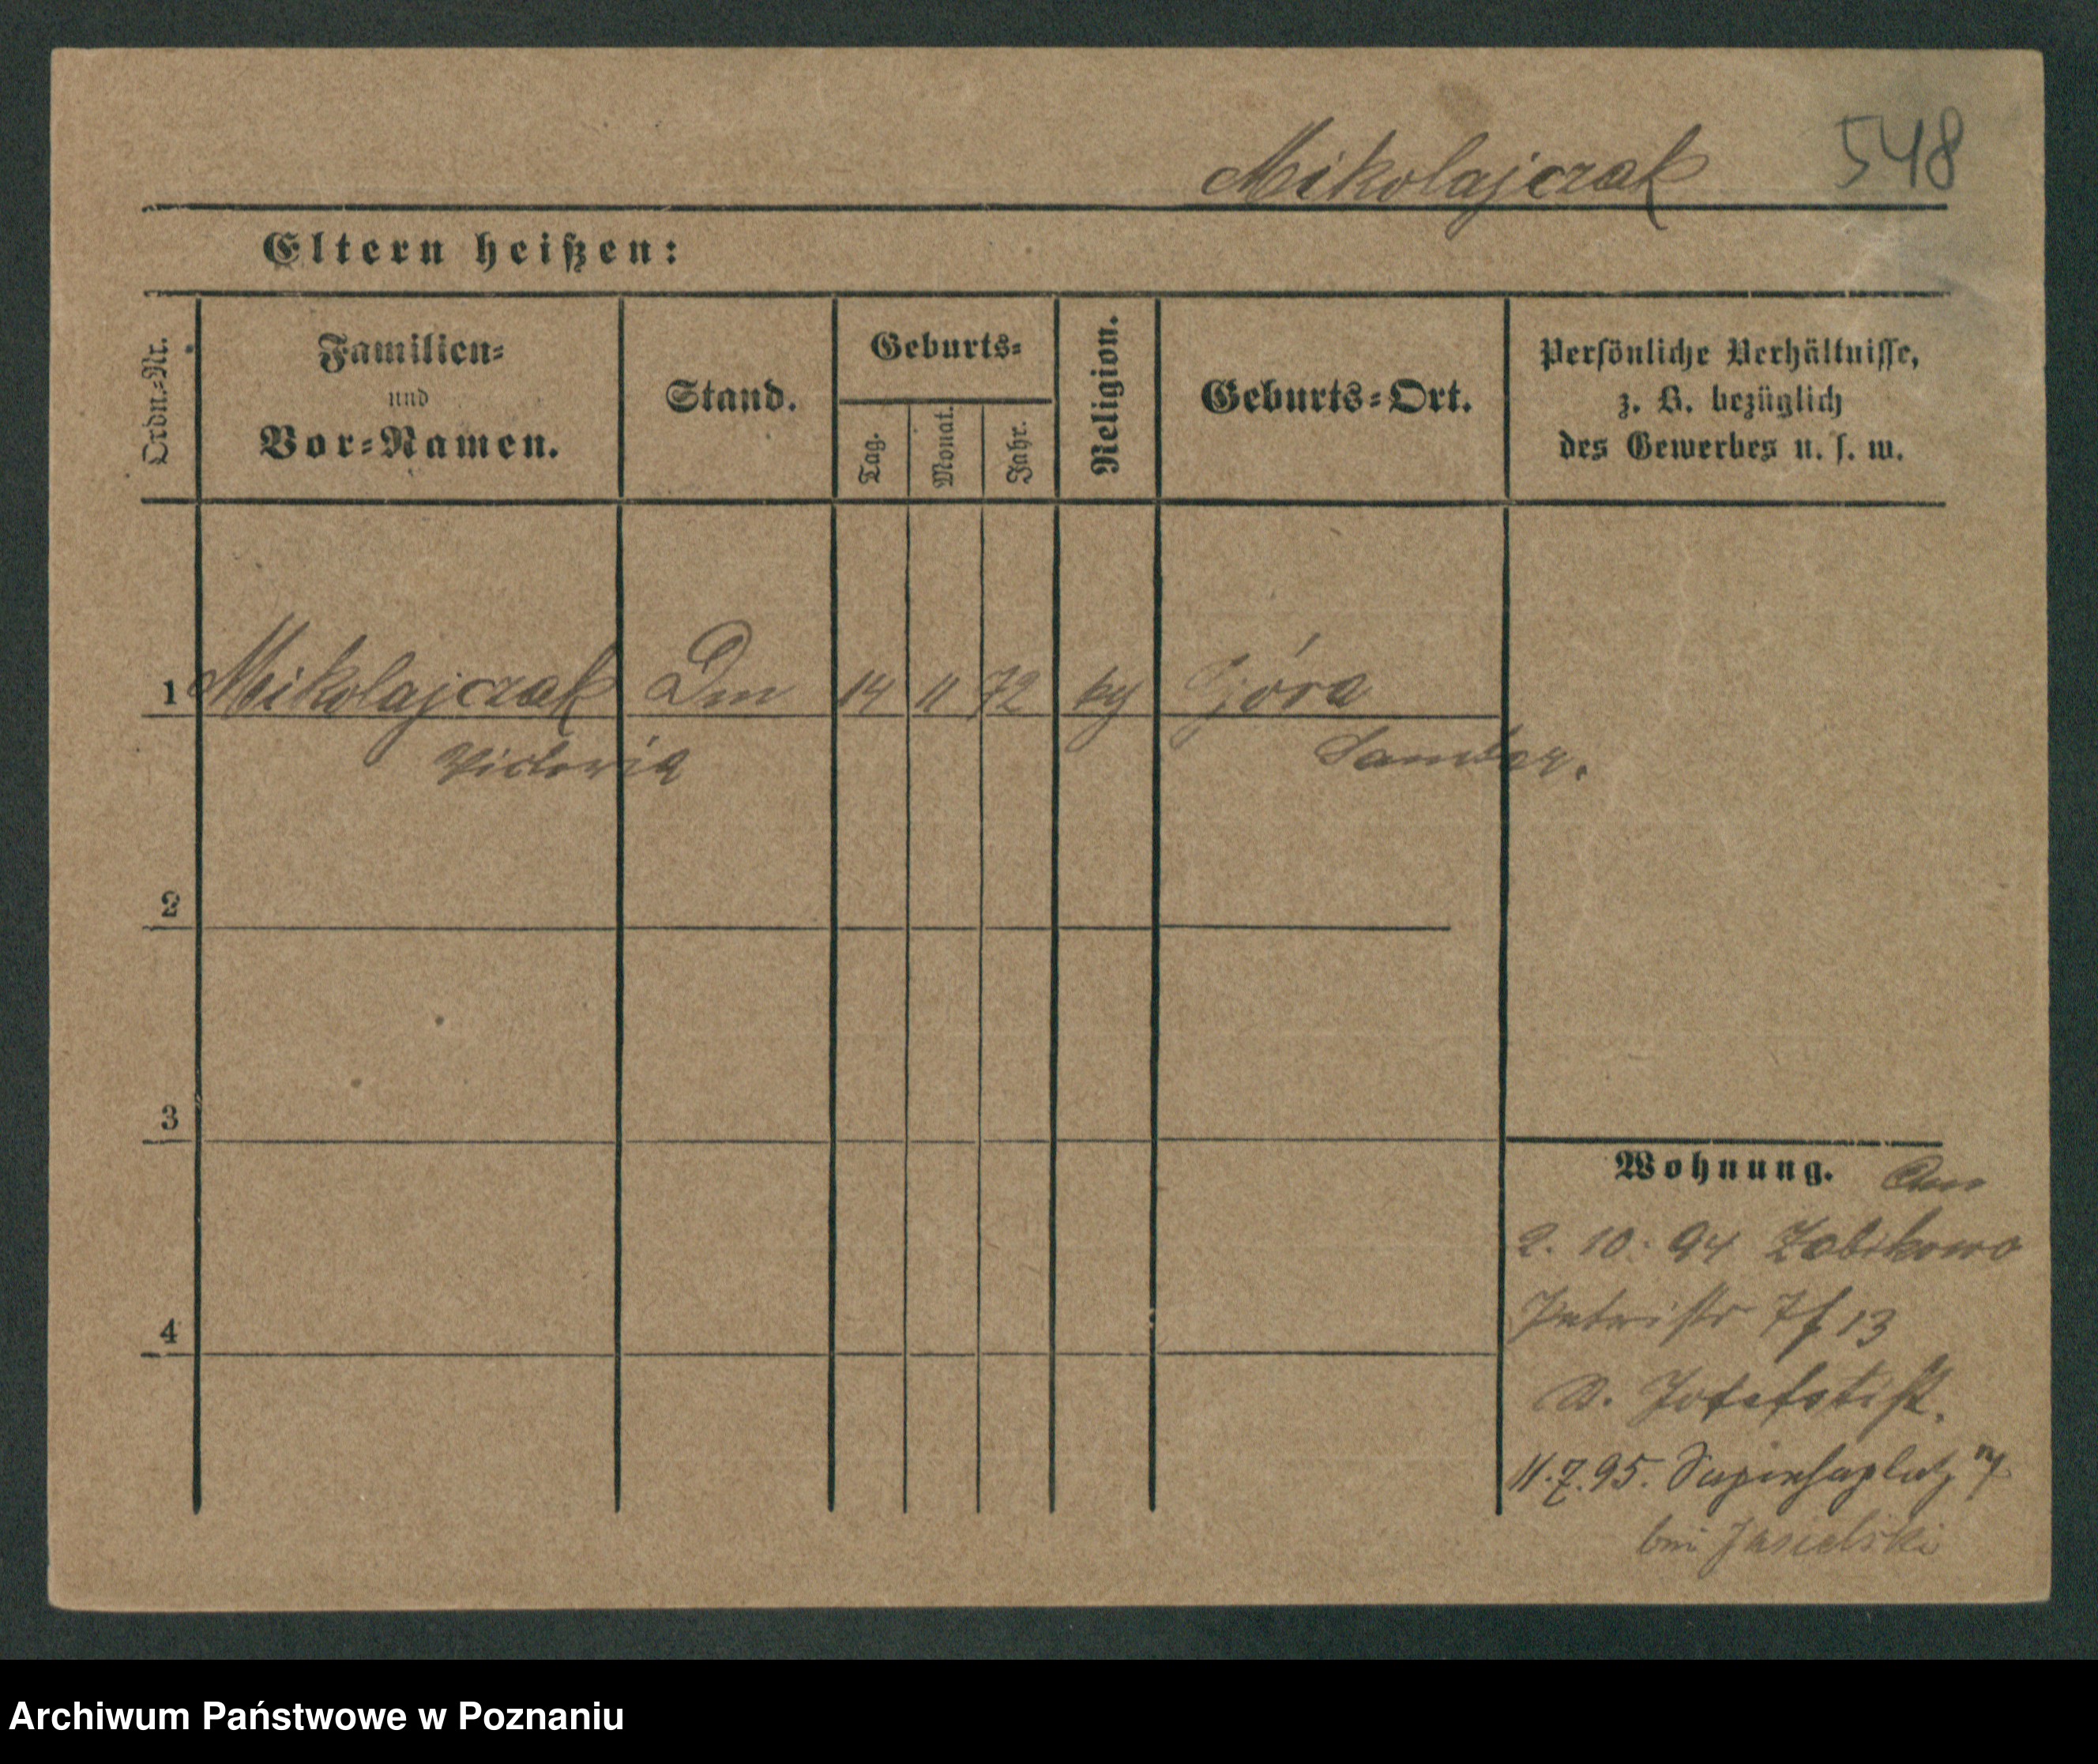 Mikolajczak 548
Eltern heißen:
Ordn.-Nr.
Familien-
und
Vor-Namen.
Stand.
Geburts-
Tag.
Monat.
Jahr.
Religion.
Geburts-Ort.
Persönliche Verhältnisse,
z. B. bezüglich
des Gewerbes u. s. w.
1 Mikolajczak Dm 14 11 72 kg Góra
Victoria Samter.
2
3
4
Wohnung. Von
2. 10. 94 Zabikowo
Petristr 7 f 13
D. Josefstift.
11.7.95. Sapiehaplatz
bei Jasielski
Archiwum Państwowe w Poznaniu